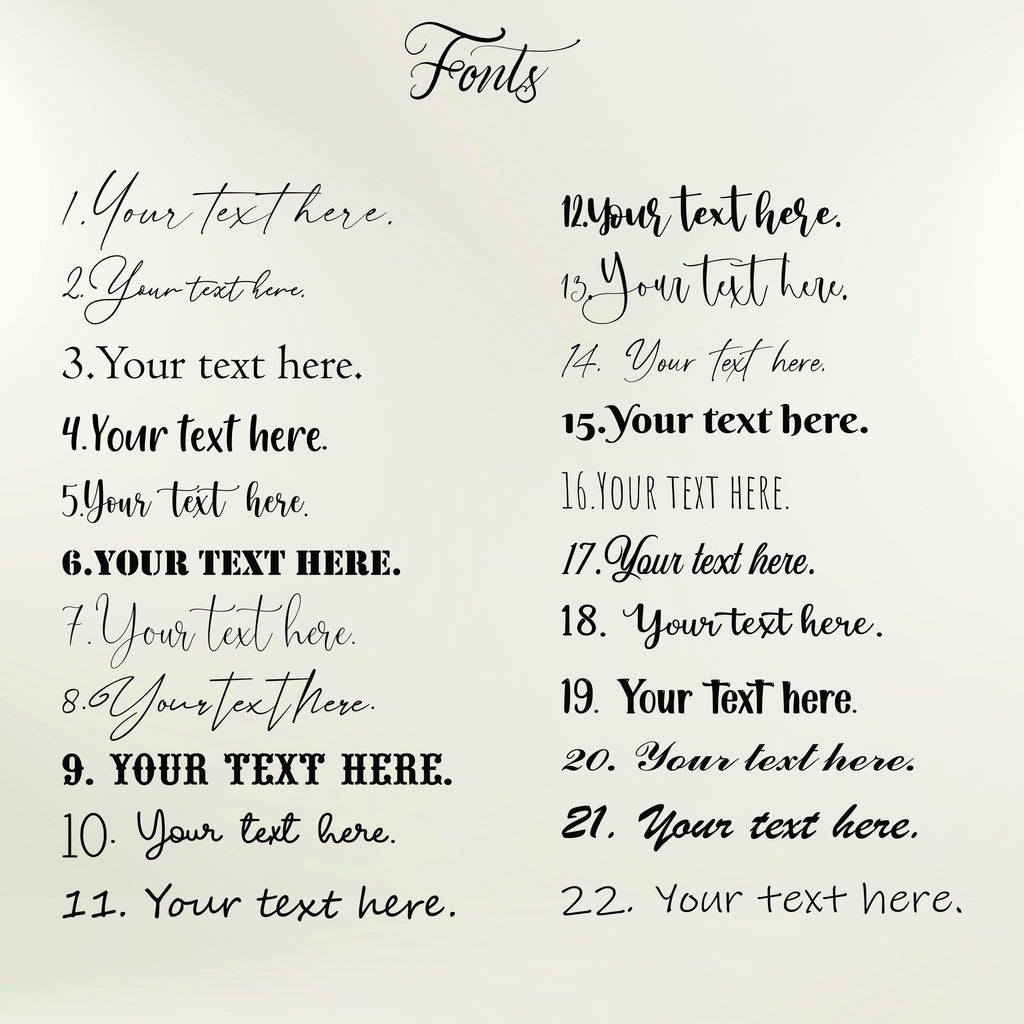 Fonts
1.Your text here.
2.Your text here.
3.Your text here.
4.Your text here.
5.Your text here.
6.YOUR TEXT HERE.
7.Your text here.
8.Your text here.
9. YOUR TEXT HERE.
10. Your text here.
11. Your text here.
12.Your text here.
13.Your text here.
14. Your text here.
15.Your text here.
16.YOUR TEXT HERE.
17.Your text here.
18. Your text here.
19. Your text here.
20. Your text here.
21. Your text here.
22. Your text here.